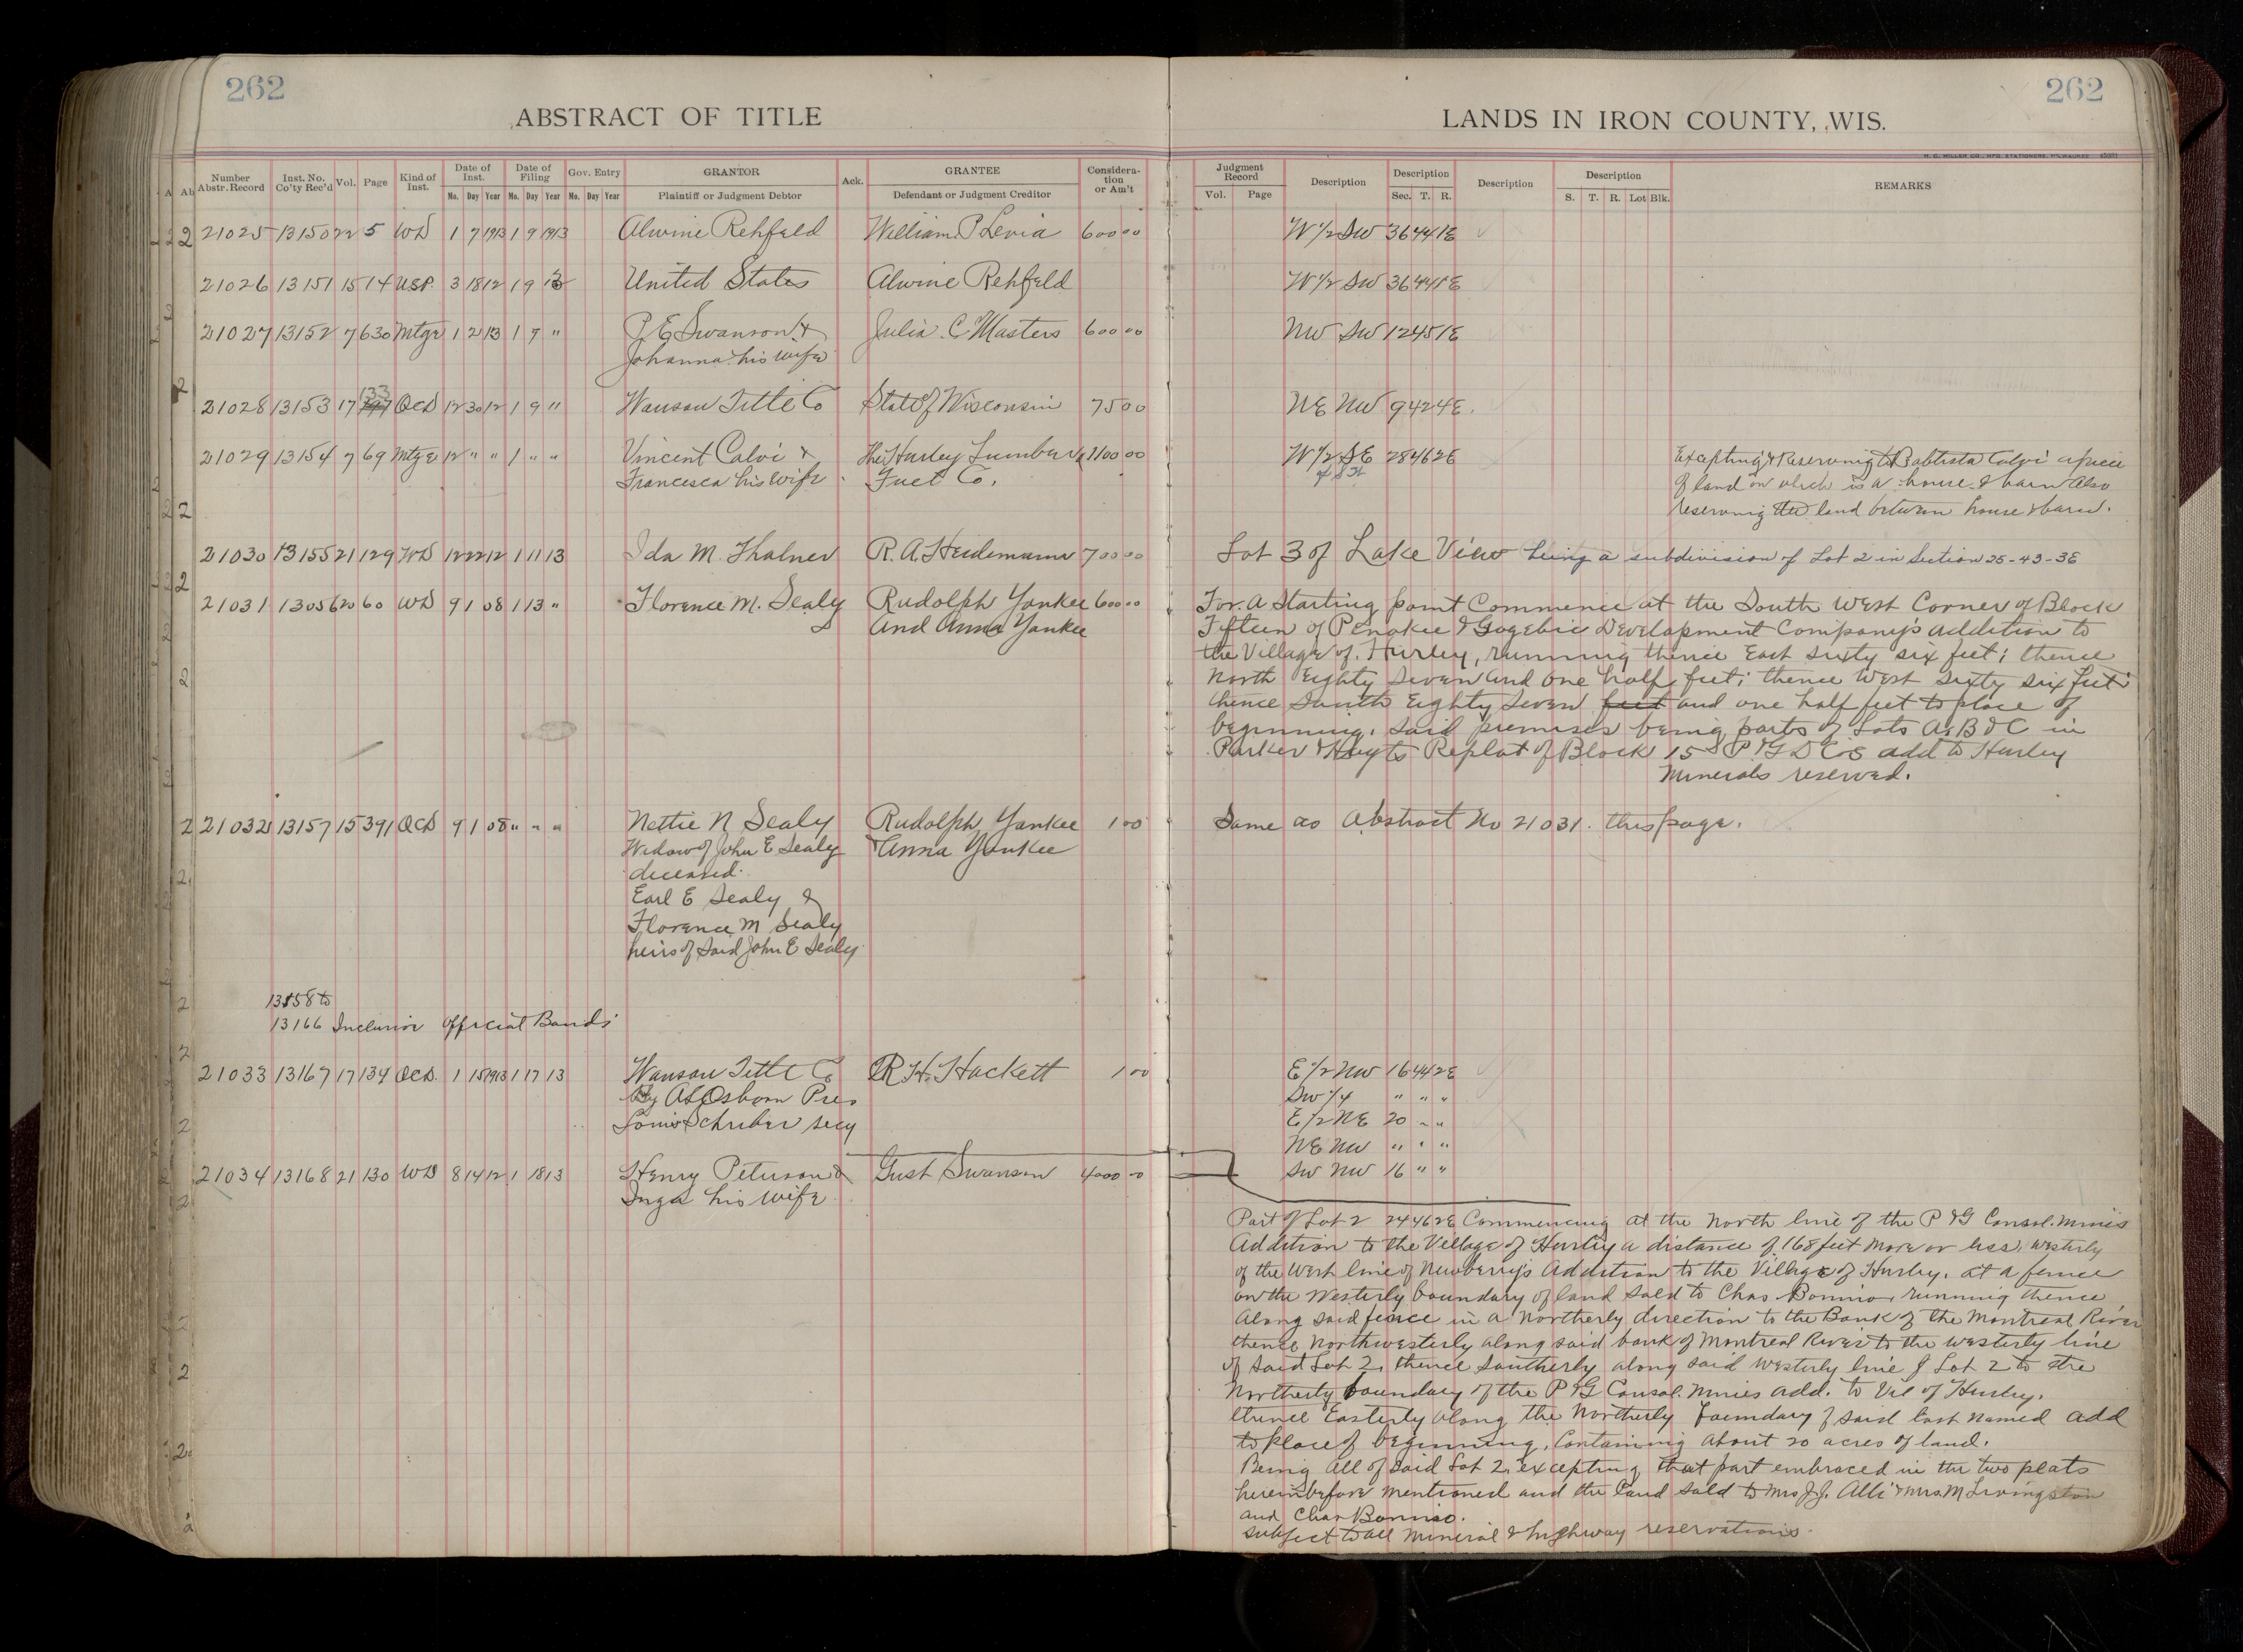 262
262
ABSTRACT OF TITLE
LANDS IN IRON COUNTY, WIS.
H. C. MILLER CO., MFG. STATIONERS, MILWAUKEE
Number Abstr. Record Inst. No. Co'ty Rec'd Vol. Page Kind of Inst. Date of Inst. Date of Filing Gov. Entry GRANTOR Ack. GRANTEE Consideration or Am't
Mo. Day Year Mo. Day Year Mo. Day Year Plaintiff or Judgment Debtor Defendant or Judgment Creditor
Judgment Record Description Description Description Description REMARKS
Vol. Page Sec. T. R. S. T. R. Lot Blk.
21025 13150 22 5 WD 1 7 1913 1 9 1913 Alwine Rehfeld William P Levia 600 00 W 1/2 SW 36 44 1E
21026 13151 15 14 USP 3 18 12 1 9 13 United States Alwine Rehfeld W 1/2 SW 36 44 1E
21027 13152 7 630 Mtge 1 2 13 1 9 " P. E Swanson & Julia C Masters 600 00 NW SW 12 45 1E
Johanna his wife
133
21028 13153 17 QCD 12 30 12 1 9 " Wausau Title Co State of Wisconsin 75 00 NE NW 9 42 4E
21029 13154 7 69 Mtge 12 " " 1 " " Vincent Calvi & The Hurley Lumber & 1100 00 W 1/2 SE 28 46 2E Excepting & Reserving to Babtista Calvi a piece
Francesca his wife Fuel Co. of land on which is a house & barn Also
reserving the land between house & barn.
21030 13155 21 129 WD 12 22 12 1 11 13 Ida M. Thalner R. A. Heidemann 700 00 Lot 3 of Lake View being a subdivision of Lot 2 in Section 25-43-3E
21031 13056 20 60 WD 9 1 08 1 13 " Florence M. Sealy Rudolph Yankee 600 00 For a starting point Commence at the South West Corner of Block
And Anna Yankee Fifteen of Penokee & Gogebic Development Company's addition to
the Village of Hurley, running thence East sixty six feet; thence
North Eighty Seven and one half feet; thence West sixty six feet;
thence South Eighty Seven feet and one half feet to place of
beginning. Said premises being parts of Lots A, B & C in
Parker & Hoyts Replat of Block 15 P & G D Co's add to Hurley
Minerals reserved.
21032 13157 15 391 QCD 9 1 08 " " " Nettie N Sealy Rudolph Yankee 1 00 Same as Abstract No 21031. this page.
Widow of John E Sealy & Anna Yankee
deceased.
Earl E Sealy &
Florence M Sealy
heirs of said John E Sealy.
13158 to
13166 Inclusive Official Bonds
21033 13167 17 134 QCD. 1 15 1913 1 17 13 Wausau Title Co R H. Hackett 1 00 E 1/2 NW 16 44 2E
By A L Osborn Pres SW 1/4 " " "
Louis Schriber secy E 1/2 NE 20 " "
NE NW " " "
21034 13168 21 130 WD 8 14 12 1 18 13 Henry Peterson & Gust Swanson 4000 00 SW NW 16 " "
Inga his wife
Part of Lot 2 24 46 2E Commencing at the North line of the P & G Consol. Mines
Addition to the Village of Hurley a distance of 168 feet more or less, westerly
of the West line of Newberry's Addition to the Village of Hurley, at a fence
on the Westerly boundary of land sold to Chas Bonino, running thence
Along said fence in a Northerly direction to the Bank of the Montreal River
thence Northwesterly along said bank of Montreal River to the westerly line
of said Lot 2, thence Southerly along said westerly line of Lot 2 to the
Northerly boundary of the P & G Consol. Mines add. to Vil of Hurley.
thence Easterly along the Northerly boundary of said last named add
to place of beginning, Containing about 20 acres of land.
Being all of said Lot 2, excepting that part embraced in the two plats
hereinbefore mentioned and the land sold to Mrs J. J. & Mrs M Livingston
and Chas Bonino.
subject to all mineral & highway reservations.